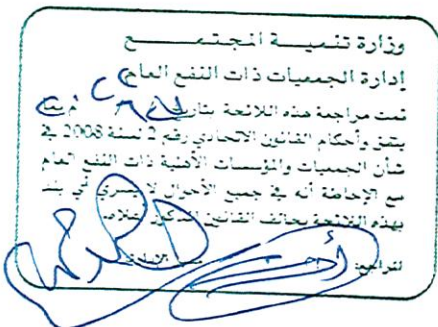 وزارة تنميـــة المجتمـــــع
إدارة الجمعيات ذات النفع العام
تمت مراجعة هذه اللائحة بتاريخ
يتفق وأحكام القانون الاتحادي رقم 2 لسنة 2008 في
شأن الجمعيات والمؤسسات الأهلية ذات النفع العام
مع الإحاطة أنه في جميع الأحوال لا يسري أي بند
بهذه اللائحة يخالف القانون المذكور أعلاه.
المراجع: